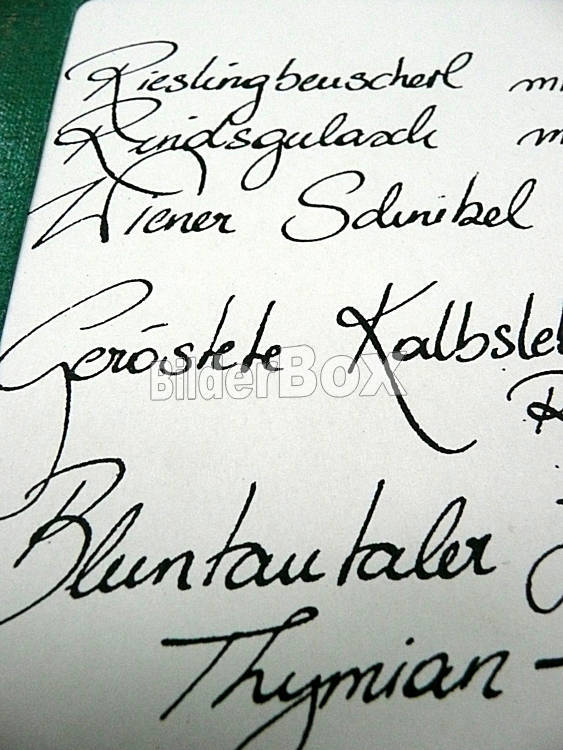 Rieslingbeuscherl m
Rindsgulasch m
Wiener Schnitzel
Geröstete Kalbsleb
R
Bluntautaler
Thymian-
BilderBOX